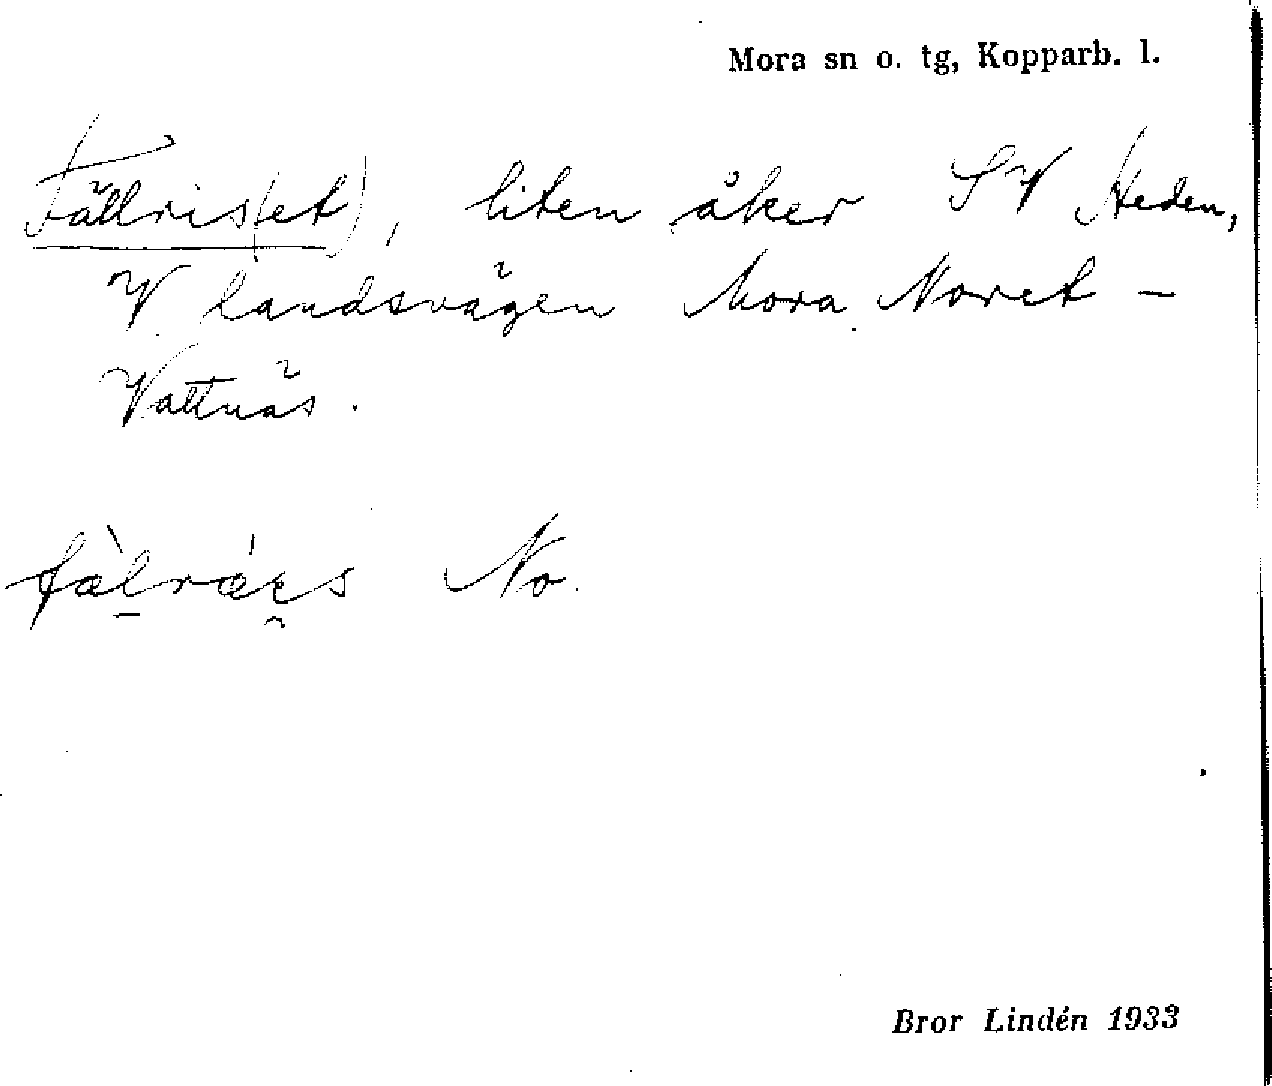 Mora sn o. tg, Kopparb. l.
Fällris(et), liten åker SV Heden,
V landsvägen Mora Noret –
Vattnäs.
fàl̠ráe̯s No.
Bror Lindén 1933